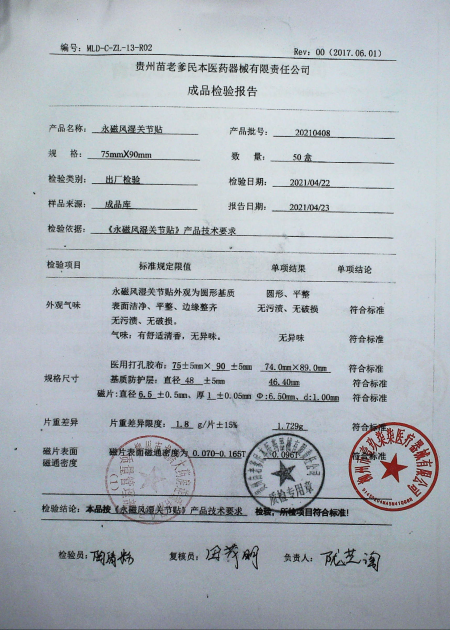 编号: MLD-C-ZL-13-R02 Rev: 00 (2017.06.01)
贵州苗老爹民本医药器械有限责任公司
成品检验报告
产品名称: 永磁风湿关节贴 产品批号: 20210408
规 格: 75mmX90mm 数 量: 50盒
检验类别: 出厂检验 检验日期: 2021/04/22
样品来源: 成品库 报告日期: 2021/04/23
检验依据: 《永磁风湿关节贴》产品技术要求
检验项目 标准规定限值 单项结果 单项结论
外观气味 永磁风湿关节贴外观为圆形基质 圆形、平整
表面洁净、平整、边缘整齐 无污渍、无破损 符合标准
无污渍、无破损。
气味: 有舒适清香, 无异味。 无异味 符合标准
规格尺寸 医用打孔胶布: 75±5mm× 90 ±5mm 74.0mm×89.0mm 符合标准
基质防护层: 直径 48 ±5mm 46.40mm 符合标准
磁片:直径 6.5 ±0.5mm、厚 1 ±0.05mm Φ:6.50mm, d:1.00mm 符合标准
片重差异 片重差异限度: 1.8 g/片±15% 1.729g 符合标准
磁片表面磁通密度 磁片表面磁通密度为 0.070-0.165T 0.096T 检查标准
质检专用章
医疗器械有限公司
检验结论: 本品按《永磁风湿关节贴》产品技术要求 检验, 所检项目符合标准!
检验员: 复核员: 负责人: